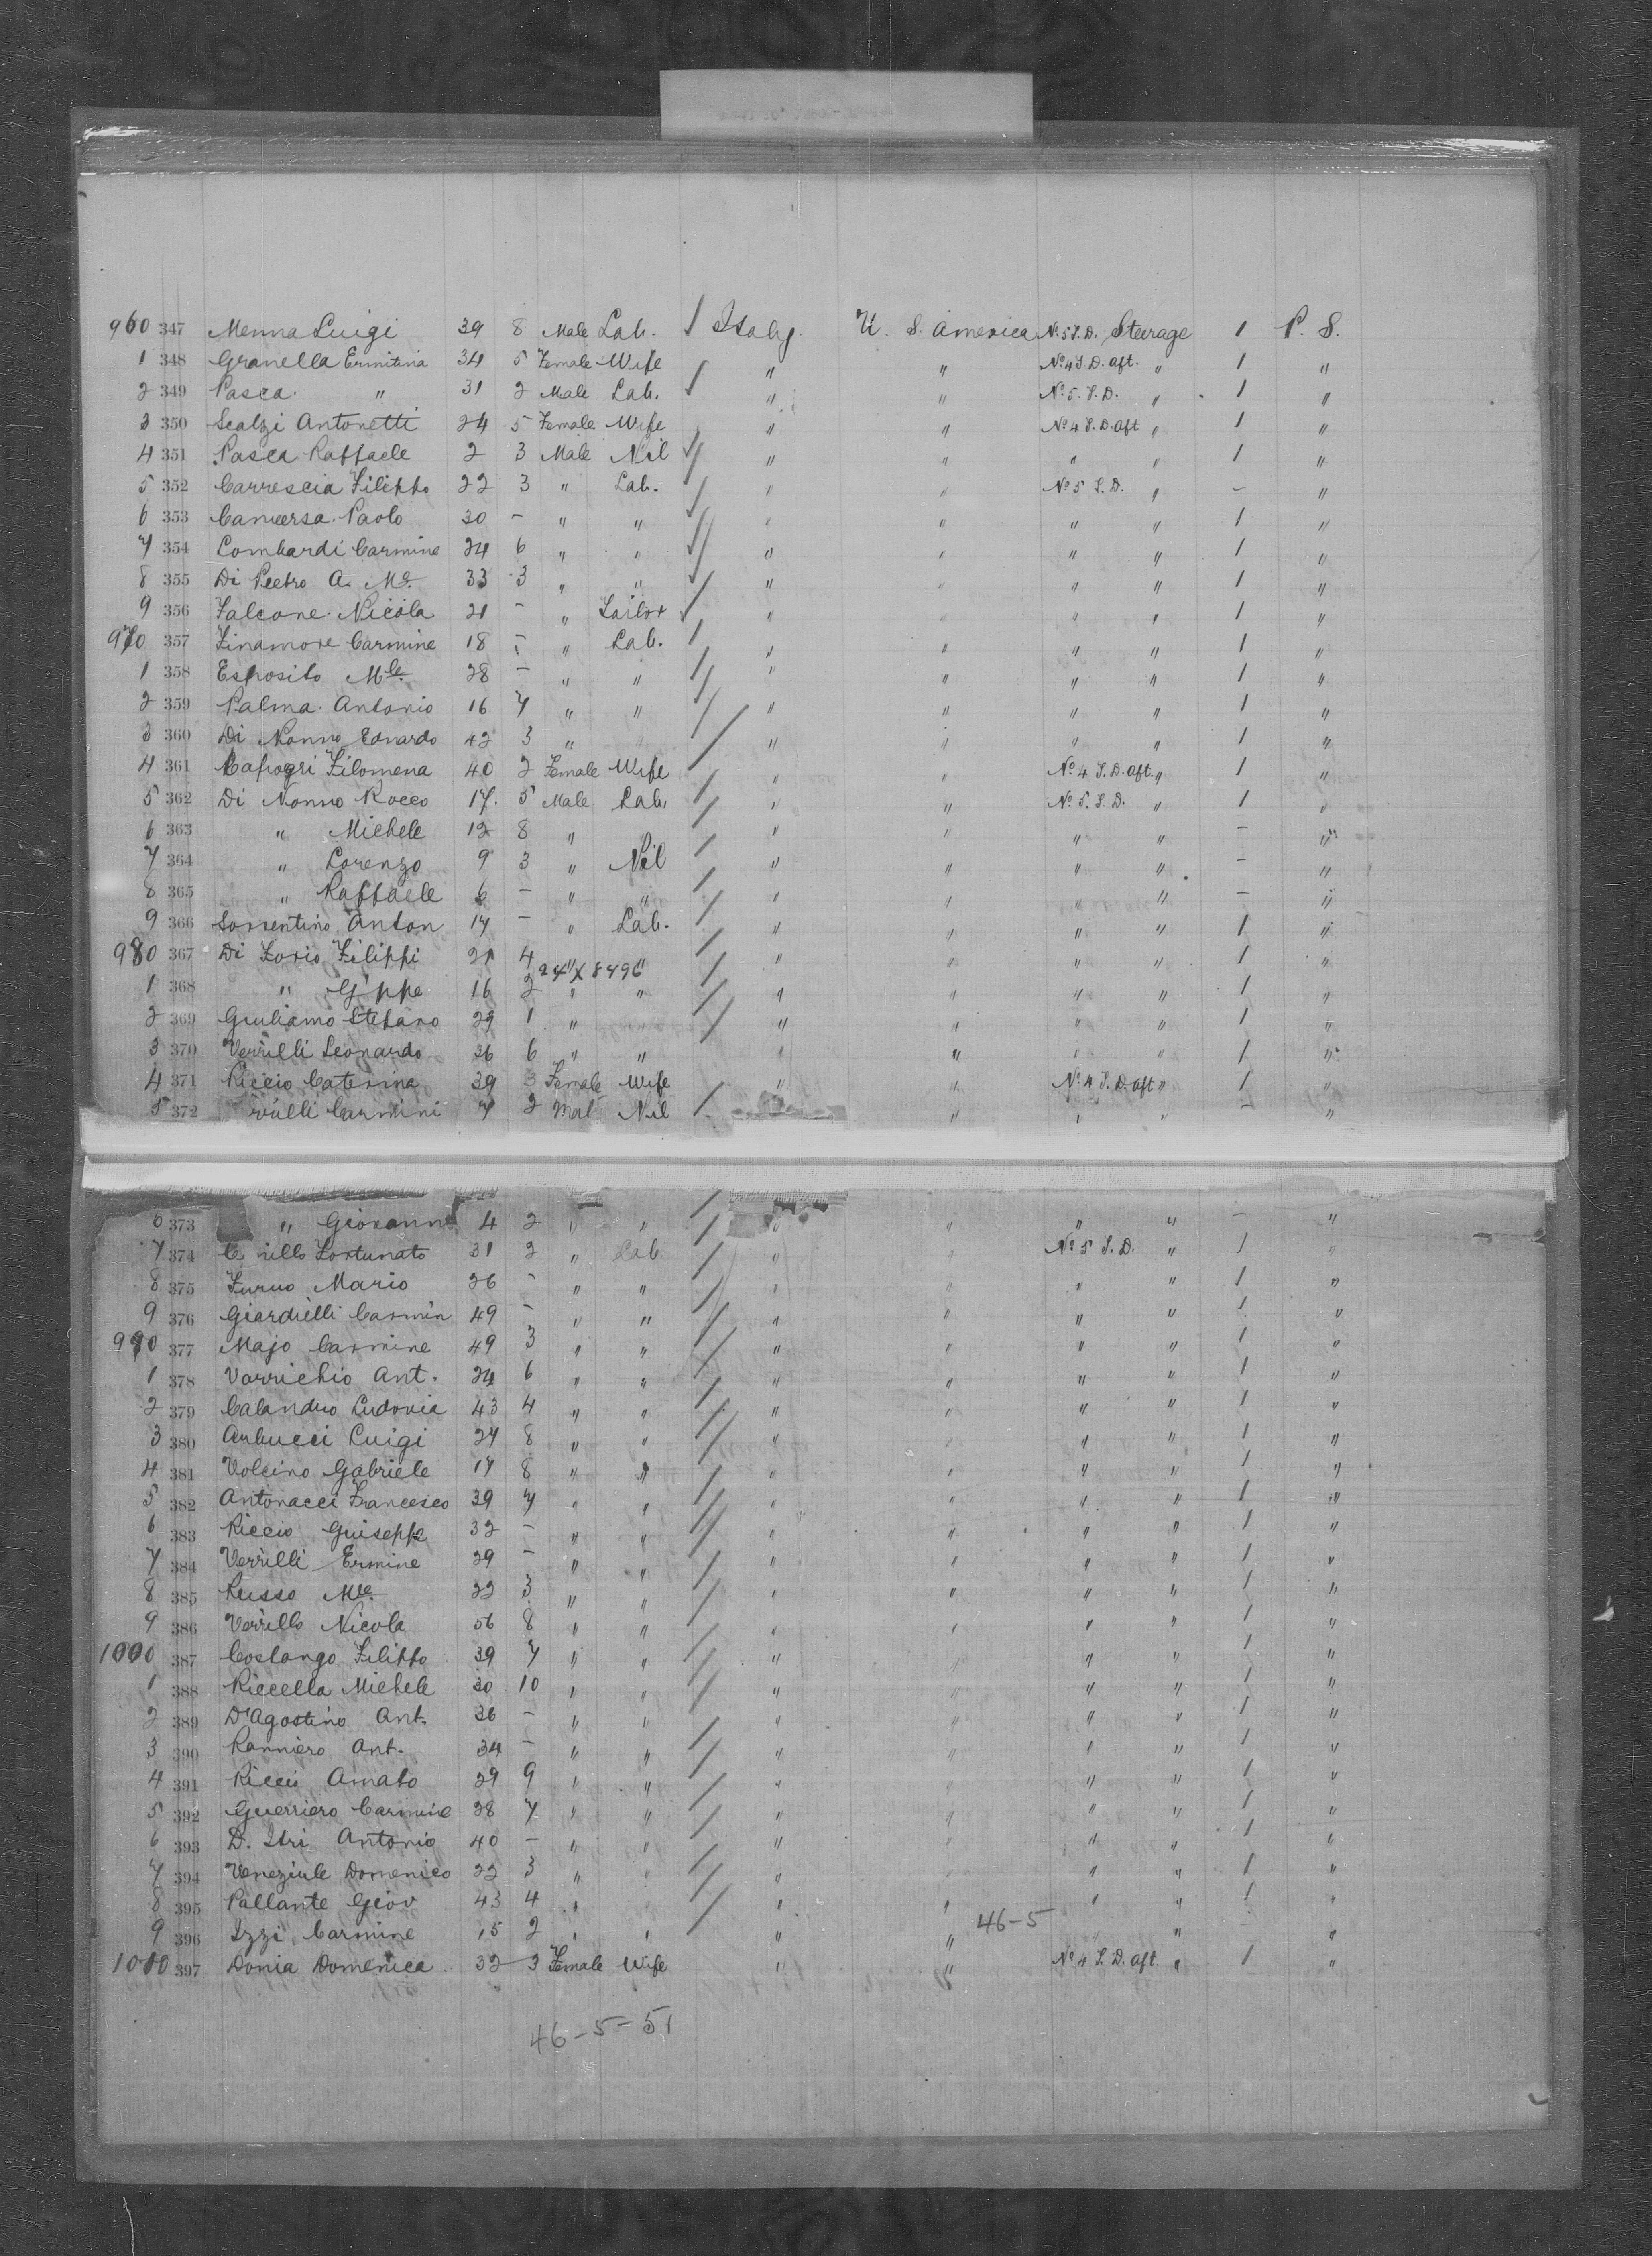 960 347 Menna Luigi 39 8 Male Lab. / Italy U. S. America No 5 S.D. Steerage 1 P. S.
1 348 Granella Ermitina 34 5 Female Wife " " No 4 S.D. aft. " 1 "
2 349 Pasca " 31 2 Male Lab. / " " No 5. S.D. " 1 "
3 350 Scalzi Antonetti 24 5 Female Wife " " No 4 S.D. aft " 1 "
4 351 Pasca Raffaele 2 3 Male Nil / " " " " 1 "
5 352 Carrescia Filippo 22 3 " Lab. / " " No 5 S.D. " - "
6 353 Paolo 30 - " " / " " " " 1 "
7 354 Lombardi Carmine 24 6 " " / " " " " 1 "
8 355 Di Pietro A. Ma. 33 3 " " / " " " " 1 "
9 356 Falcone Nicola 21 - " Tailor / " " " " 1 "
970 357 Finamore Carmine 18 - " Lab. / " " " " 1 "
1 358 Esposito Mle. 28 - " " / " " " " 1 "
2 359 Palma Antonio 16 7 " " / " " " " 1 "
3 360 Di Nonno Edvardo 42 3 " " / " " " " 1 "
4 361 Capogri Filomena 40 2 Female Wife / " " No 4 S.D. aft. " 1 "
5 362 Di Nonno Rocco 17. 5 Male Lab. / " " No 5. S.D. " 1 "
6 363 " Michele 12 8 " / " " " " - "
7 364 " Lorenzo 9 3 " Nil / " " " " - "
8 365 " Raffaele 6 - " " / " " " " - "
9 366 Sorrentino Anton 17 - " Lab. / " " " " 1 "
980 367 Di Iorio Filippi 21 4 " " / " " " " 1 "
24 X 8496
1 368 " G'ppe 16 2 " " / " " " " 1 "
2 369 Giuliamo Stefano 29 1 " / " " " " 1 "
3 370 Verrilli Leonardo 36 6 " " " " " " 1 "
4 371 Riccio Caterina 39 3 Female Wife " " No 4 S.D. aft " 1 "
5 372 rrilli Carmini 7 2 Mal Nil / " " " " - "
6 373 " Giovann 4 2 " " / " " " " - "
7 374 C rillo Fortunato 31 2 " Lab / " " No 5 S.D. " 1 "
8 375 Furno Mario 26 - " " / " " " " 1 "
9 376 Giardielli Carmin 49 - " " / " " " " 1 "
990 377 Majo Carmine 49 3 " " / " " " " 1 "
1 378 Varrichio Ant. 24 6 " " / " " " " 1 "
2 379 Calandro Ludovia 43 4 " " / " " " " 1 "
3 380 Arbucci Luigi 27 8 " " / " " " " 1 "
4 381 Volcino Gabriele 17 8 " " / " " " " 1 "
5 382 Antonacci Francesco 39 7 " " / " " " " 1 "
6 383 Riccio Guiseppe 32 - " " / " " " " 1 "
7 384 Verrilli Ermine 29 - " " / " " " " 1 "
8 385 Russo Mle. 22 3 " " / " " " " 1 "
9 386 Verrillo Nicola 56 8 " " / " " " " 1 "
1000 387 Coslango Filippo 39 7 " " / " " " " 1 "
1 388 Riccella Michele 30 10 " " / " " " " 1 "
2 389 D'Agostino Ant. 36 - " " / " " " " 1 "
3 390 Ranniero Ant. 34 - " " / " " " " 1 "
4 391 Ricci Amato 29 9 " " / " " " " 1 "
5 392 Guerriero Carmine 28 7 " " / " " " " 1 "
6 393 D. Itri Antonio 40 - " " / " " " " 1 "
7 394 Domenico 22 3 " " / " " " " 1 "
8 395 Pallante Giov 43 4 " / " " " " 1 "
46-5
9 396 Izzi Carmine 15 2 " " / " " " " "
1010 397 Donia Domenica 32 3 Female Wife " " No 4 S.D. aft. " 1 "
46-5-51